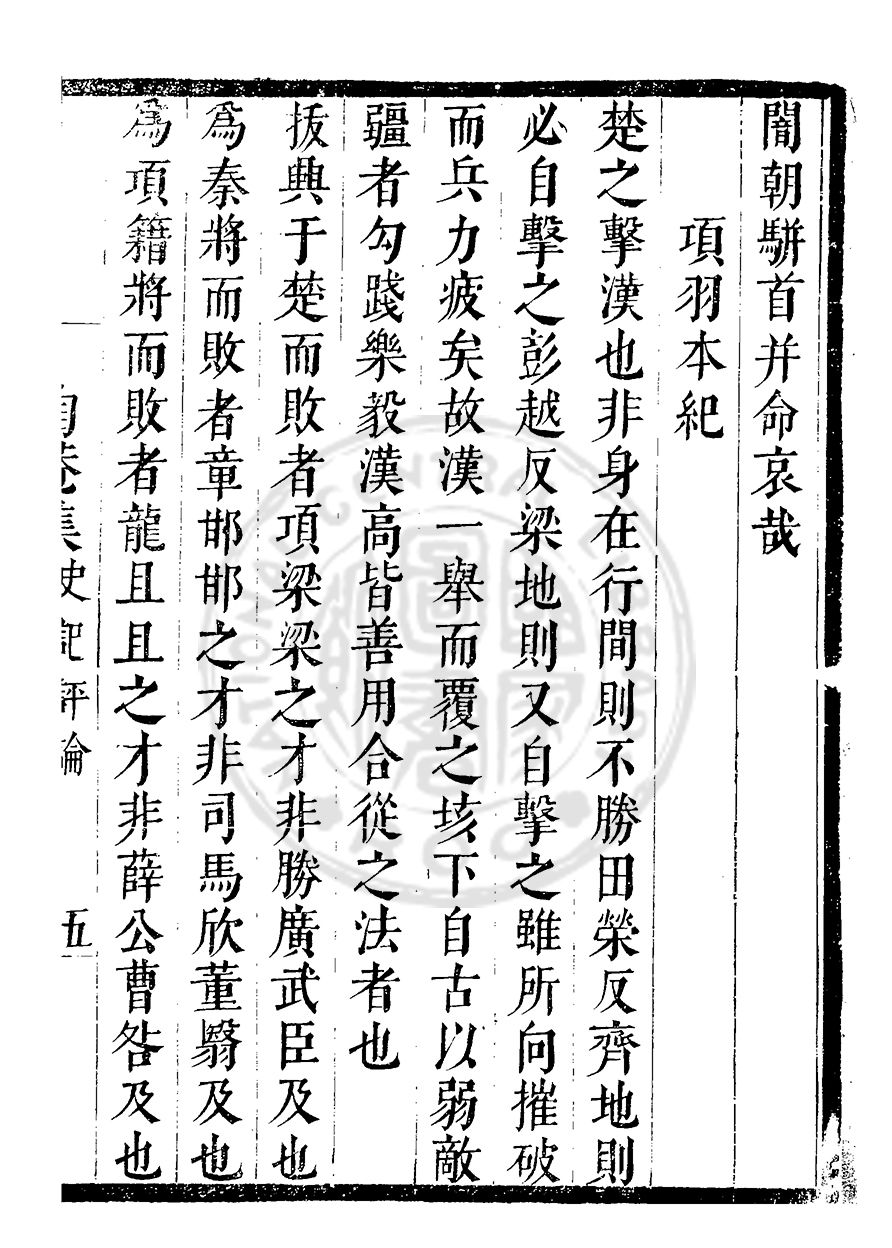 闇朝駢首并命哀哉
項羽本紀
楚之擊漢也非身在行間則不勝田榮反齊地則
必自擊之彭越反梁地則又自擊之雖所向摧破
而兵力疲矣故漢一舉而覆之垓下自古以弱敵
疆者勾踐樂毅漢高皆善用合從之法者也
拔興于楚而敗者項梁梁之才非勝廣武臣及也
為秦將而敗者章邯邯之才非司馬欣董翳及也
為項籍將而敗者龍且且之才非薛公曹咎及也
陶菴集史記評論 五